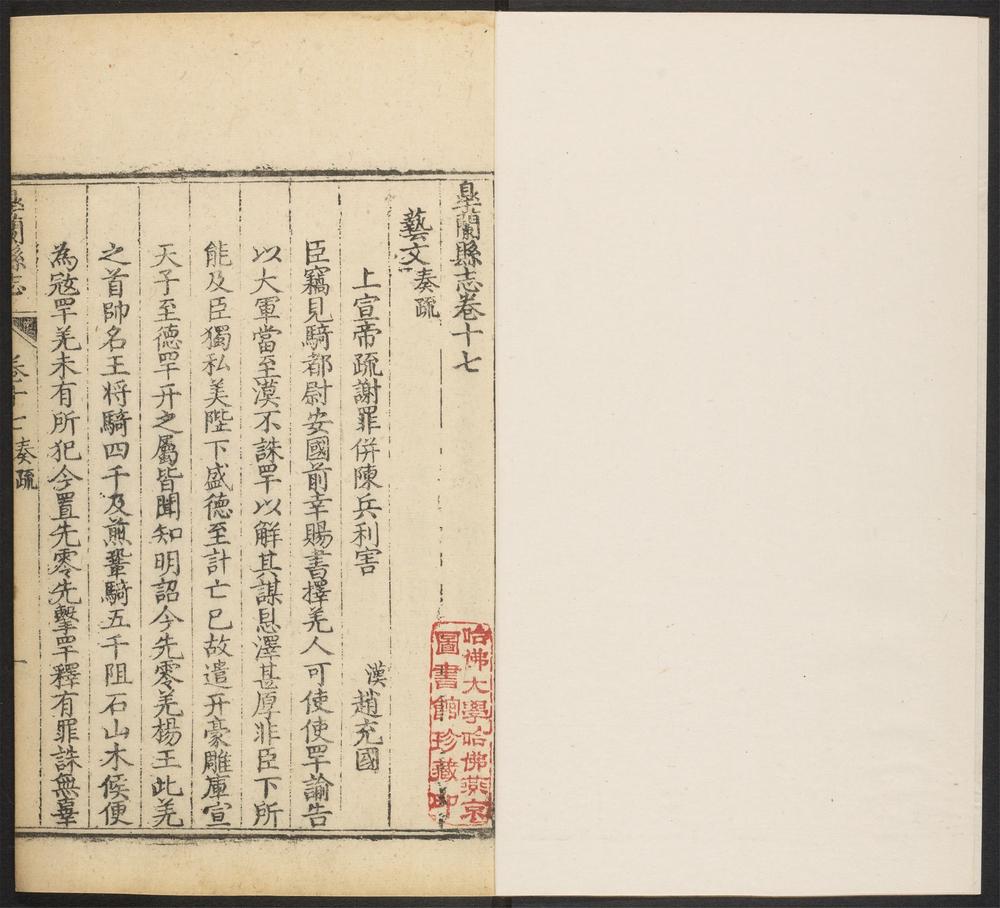 臯蘭縣志卷十七
藝文奏疏
上宣帝疏謝罪併陳兵利害
漢趙充國
臣竊見騎都尉安國前幸賜書擇羌人可使使罕諭告
以大軍當至漢不誅罕以解其謀恩澤甚厚非臣下所
能及臣獨私美陛下盛德至計亡已故遣幵豪雕庫宣
天子至德罕幵之屬皆聞知明詔今先零羌楊王此羌
之首帥名王将騎四千及煎鞏騎五千阻石山木候便
為㓂罕羌未有所犯今置先零先擊罕釋有罪誅無辜
臯蘭縣志
卷十七奏疏
一
哈佛大學哈佛燕京
圖書館珍藏印